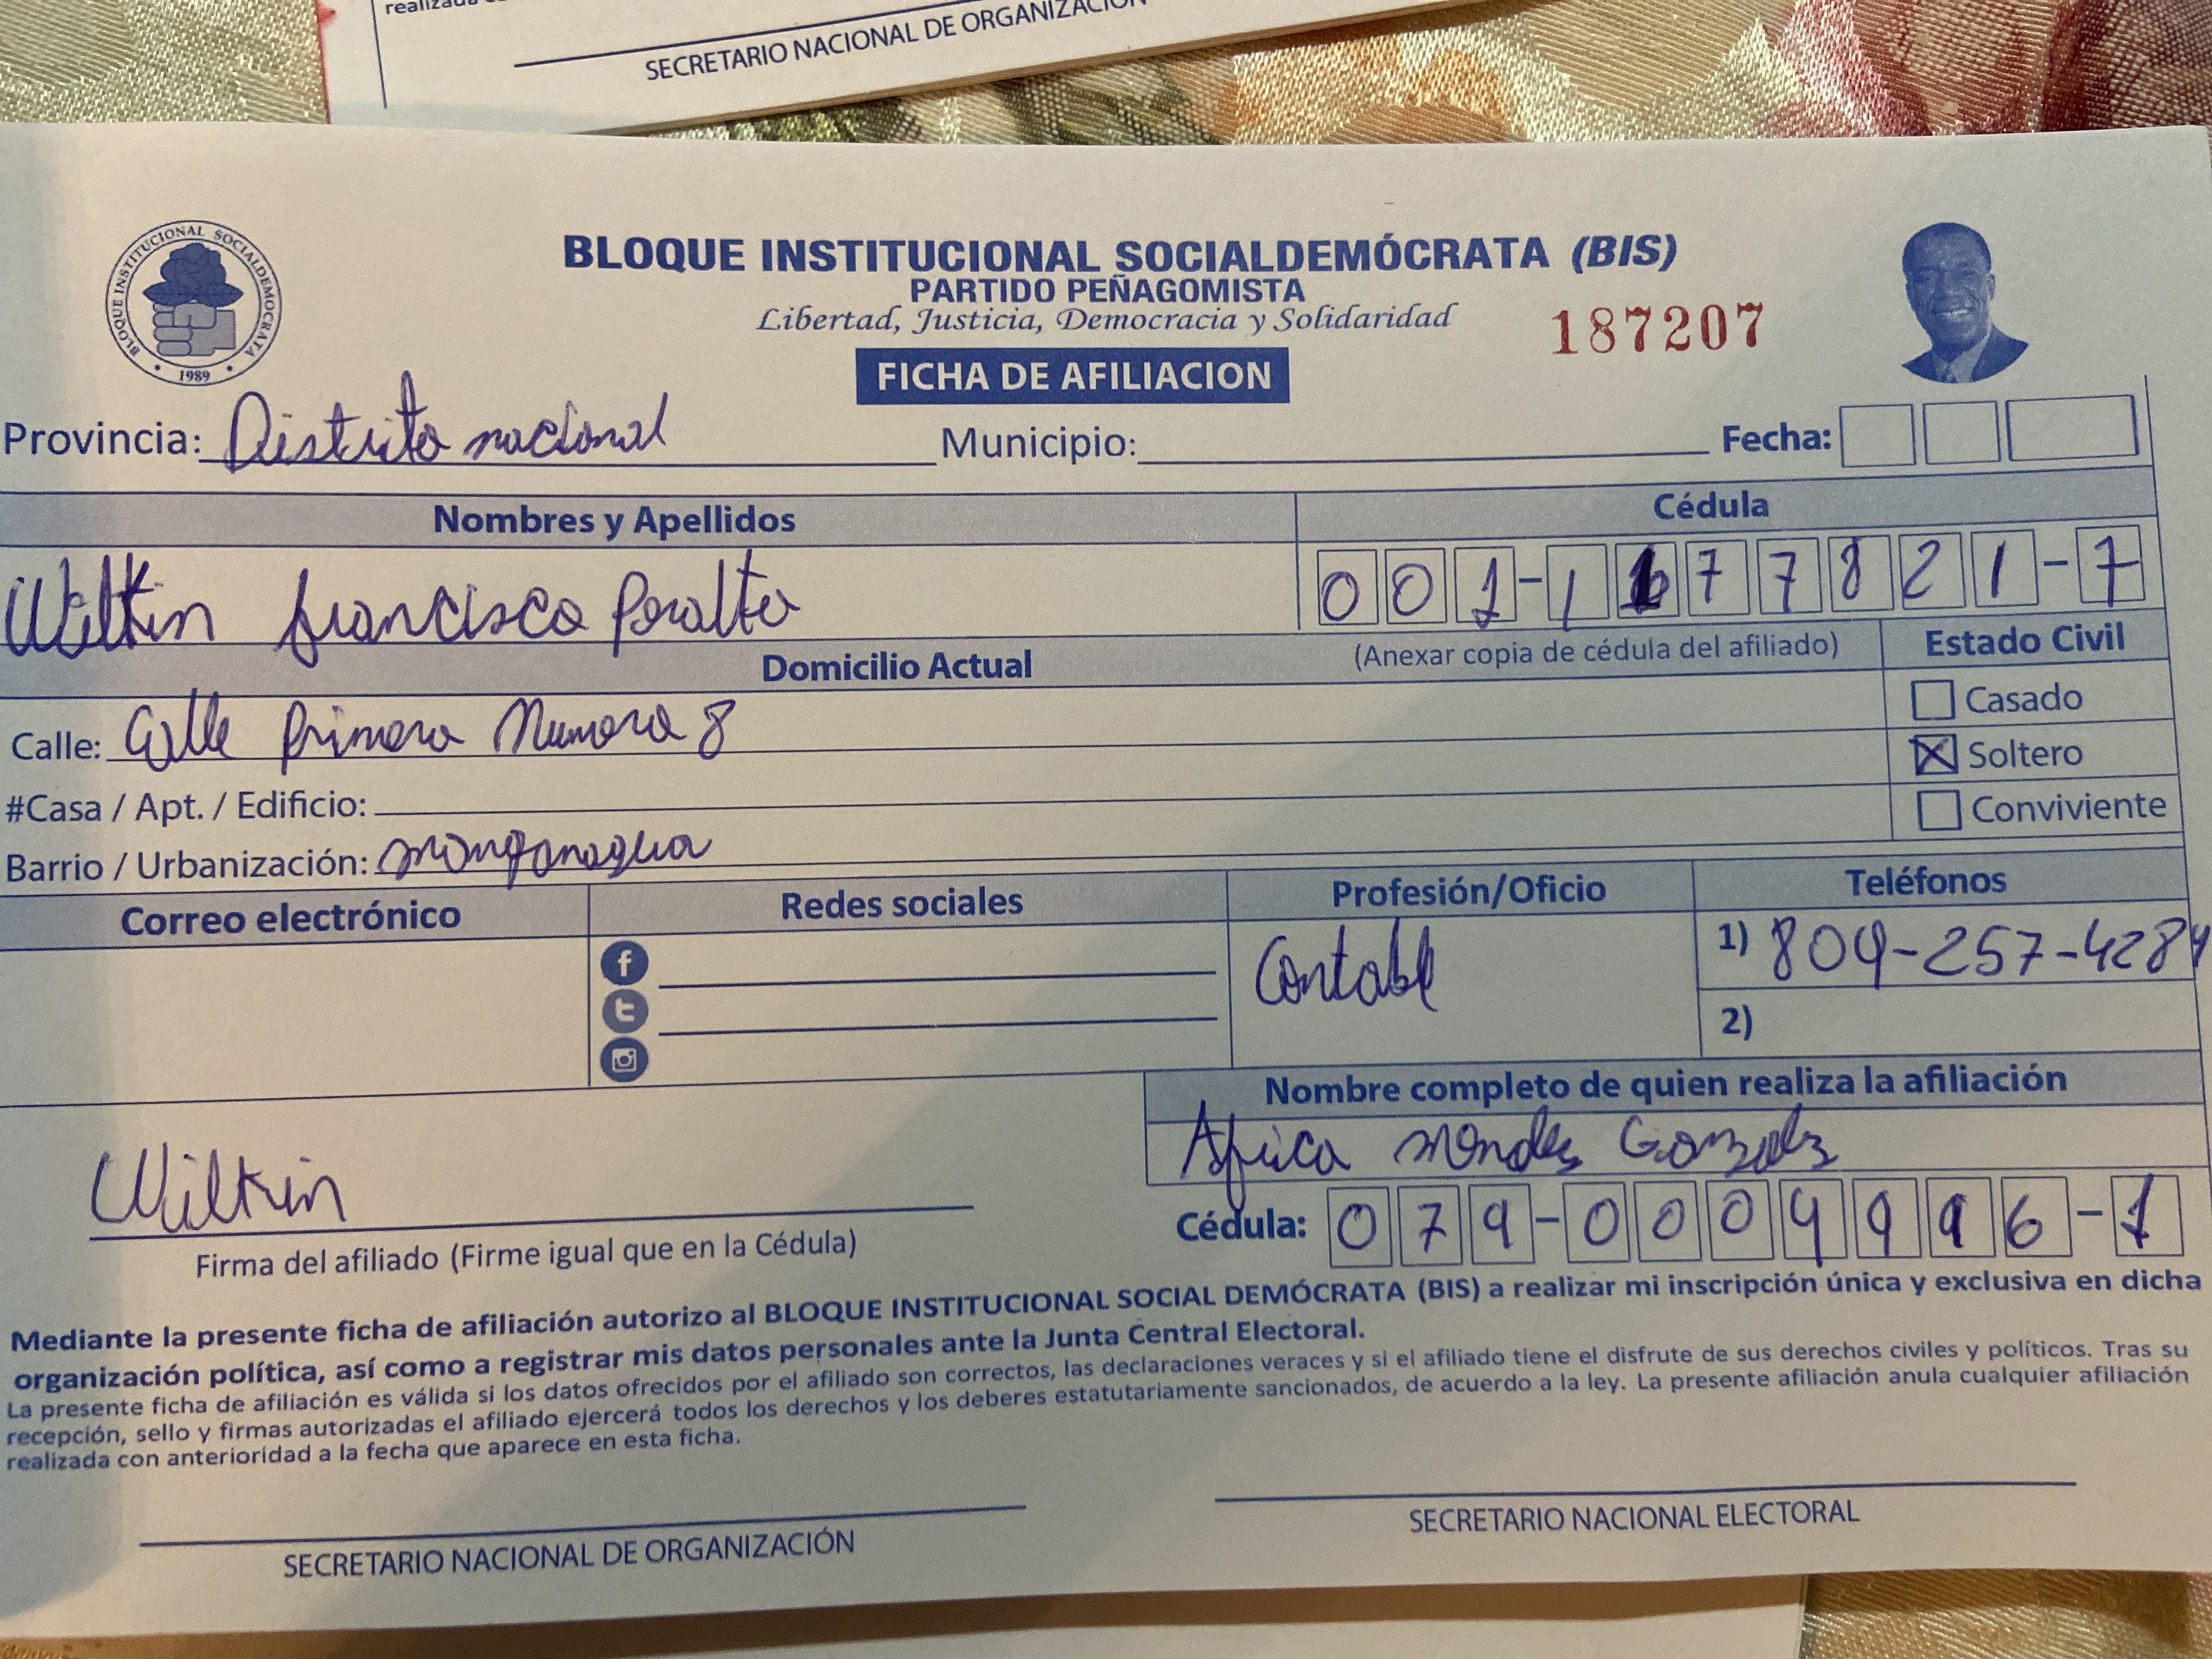 realizada
SECRETARIO NACIONAL DE ORGANIZACIÓN
BLOQUE INSTITUCIONAL SOCIALDEMOCRATA
1989
BLOQUE INSTITUCIONAL SOCIALDEMÓCRATA (BIS)
PARTIDO PEÑAGOMISTA
Libertad, Justicia, Democracia y Solidaridad
187207
FICHA DE AFILIACION
Provincia: Distrito nacional Municipio: Fecha:
Nombres y Apellidos Cédula
Wilkin francisco Peralta 001-1 77821-7
Domicilio Actual (Anexar copia de cédula del afiliado) Estado Civil
Casado
Calle: Calle Primera Numero 8
Soltero
#Casa / Apt. / Edificio:
Conviviente
Barrio / Urbanización: manganagua
Correo electrónico Redes sociales Profesión/Oficio Teléfonos
Contable 1) 809-257-4284
2)
Nombre completo de quien realiza la afiliación
Africa mendes Gonzalz
Wilkin
Cédula: 079-0004996-1
Firma del afiliado (Firme igual que en la Cédula)
Mediante la presente ficha de afiliación autorizo al BLOQUE INSTITUCIONAL SOCIAL DEMÓCRATA (BIS) a realizar mi inscripción única y exclusiva en dicha
organización política, así como a registrar mis datos personales ante la Junta Central Electoral.
La presente ficha de afiliación es válida si los datos ofrecidos por el afiliado son correctos, las declaraciones veraces y si el afiliado tiene el disfrute de sus derechos civiles y políticos. Tras su
recepción, sello y firmas autorizadas el afiliado ejercerá todos los derechos y los deberes estatutariamente sancionados, de acuerdo a la ley. La presente afiliación anula cualquier afiliación
realizada con anterioridad a la fecha que aparece en esta ficha.
SECRETARIO NACIONAL DE ORGANIZACIÓN
SECRETARIO NACIONAL ELECTORAL